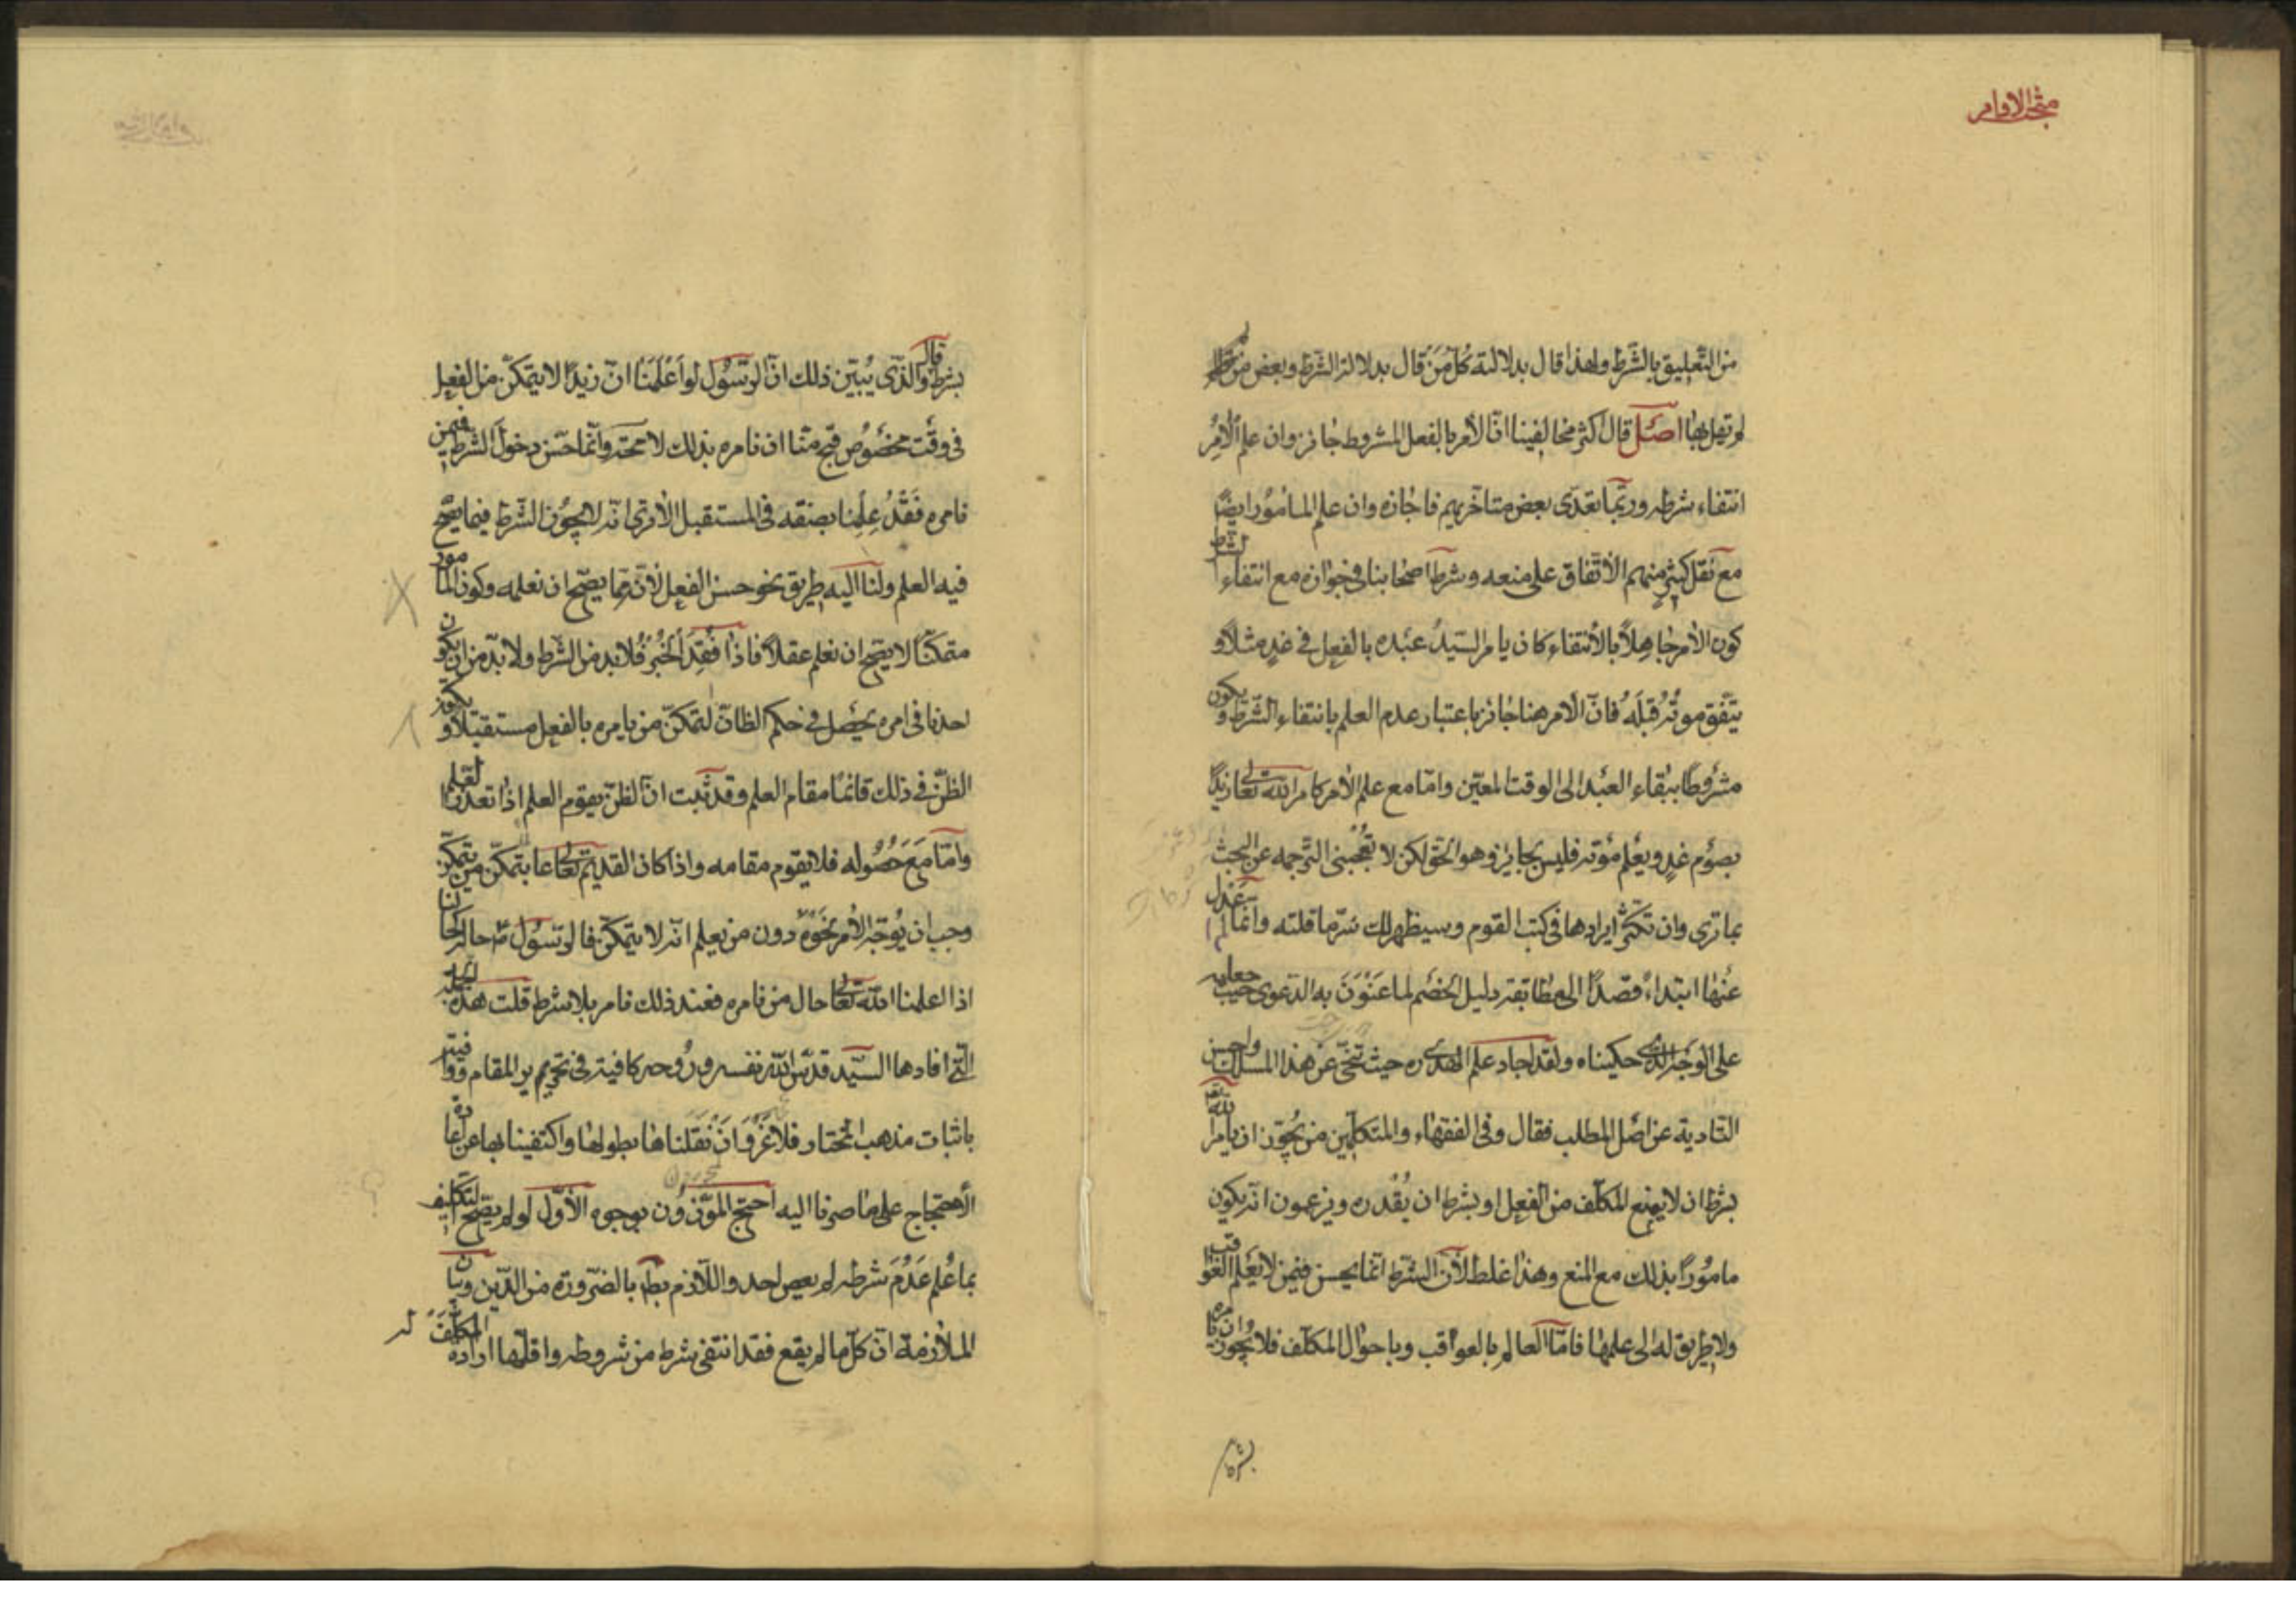 مبحث الاوامر
من التعليق بالشرط ولهذا قال بدلالته كل من قال بدلالة الشرط وبعض من
لم يقل بها اصل قال اكثر مخالفينا انّ الأمر بالفعل المشروط جائز وان علم الآمر
انتفاء شرطه وربّما تعدّى بعض متأخريهم فاجازه وان علم المأمور ايضًا
مع نقل كثير منهم الاتفاق على منعه وشرط اصحابنا فى جوازه مع انتفاء الشرط
كون الآمر جاهلًا بالانتفاء كان يامر السيّد عبده بالفعل فى غدٍ مثلًا و
يتّفق موته قبله فانّ الأمر هنا جائز باعتبار عدم العلم بانتفاء الشرط ويكون
مشروطًا ببقاء العبد الى الوقت المعيّن وامّا مع علم الآمر كامر الله تعالى زيدًا
بصوم غدٍ ويعلم موته فليس بجايز وهو الحق لكن لا تعجبنى الترجمه عن البحث
بما ترى وان تكثّر ايرادها فى كتب القوم وسيظهر لك سرّ ما قلته وانّما لم عدل
عنها ابتداءً قصدًا الى مطابقة دليل الخصم لما عنون به الدعوى حيث جعله
على الوجه الذى حكيناه ولقد اجاد علم الهدى ره حيث تنحّى عن هذا المسلك واحسن
التادية عن اصل المطلب فقال وفى الفقهاء والمتكلّمين من يجوّز ان يأمر الله
بشرط ان لا يمنع المكلّف من الفعل او بشرط ان يقدره ويزعمون انّه يكون
مامورًا بذلك مع المنع وهذا غلط لأن الشرط انّما يحسن فيمن لا يعلم العواقب
ولا طريق له الى علمها فامّا العالم بالعواقب وباحوال المكلّف فلا يجوز ان يامره
بشرط
بشرط قال والذى يبيّن ذلك انّ الرسول لو اعلمنا انّ زيدًا لا يتمكّن من الفعل
فى وقت مخصوص قبح منّا ان نامره بذلك لا محة وانّما حسن دخول الشرط فيمن
نامره فقد علمنا بصفته فى المستقبل الا ترى انّه لا يجوز الشرط فيما يصح
فيه العلم ولنا اليه طريق نحو حسن الفعل لأنّه ممّا يصحّ ان نعلمه وكون المامور
متمكّنًا لا يصح ان نعلم عقلًا فاذا فقد الخبر فلا بد من الشرط ولا بدّ من ان يكون
احدنا فى امره يحصل فى حكم الظانّ لتمكّن من يامره بالفعل مستقبلًا ويكون
الظنّ فى ذلك قائمًا مقام العلم وقد ثبت انّ الظنّ يقوم العلم اذا تعذر العلم
وامّا مع حصوله فلا يقوم مقامه واذا كان القديم تعالى عا بتمكّن من يتمكّن
وجب ان يوجّه الأمر نحوه دون من يعلم انّه لا يتمكّن فالرسول ص حاله كحالنا
اذا اعلمنا الله تعالى حال من نامره فعند ذلك نامر بلا شرط قلت هذه الجملة
التى افادها السيّد قدّس الله نفسه وروحه كافية فى تحرير المقام وافية
باثبات مذهب المختار فلا غرو ان نقلناها بطولها واكتفينا بها عن اعادة
الأحتجاج على ما صرنا اليه احتج المجوّزون بوجوه الأوّل لو لم يصح التكليف
بما علم عدم شرطه لم يعص احد واللازم بط بالضرورة من الدّين وبيان
الملازمة انّ كل ما لم يقع فقد انتفى شرط من شروطه واقلّها ارادة المكلّف له